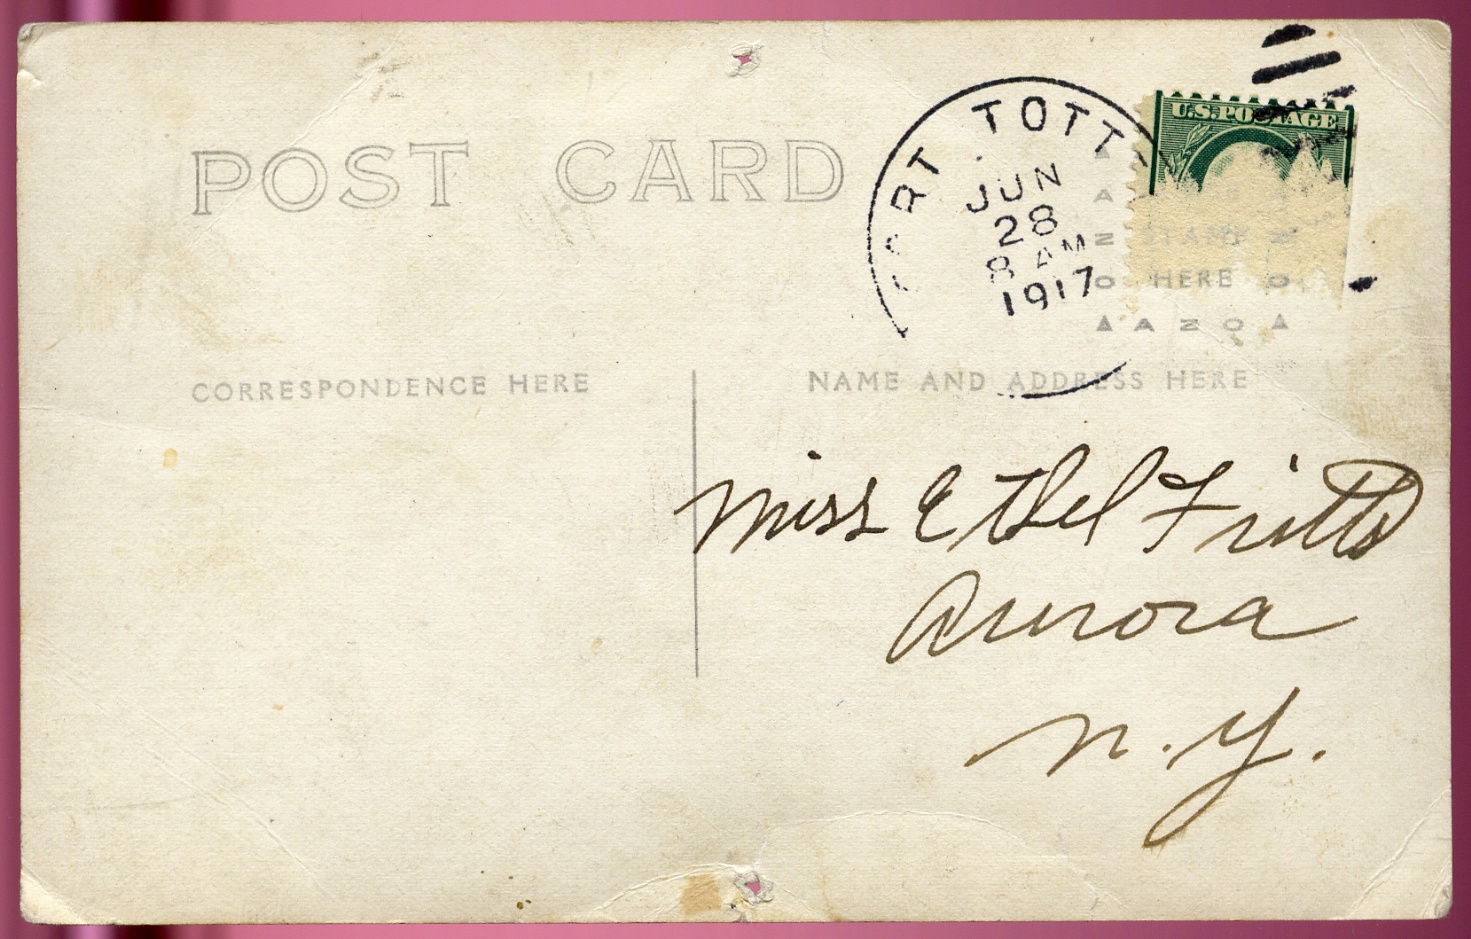 POST CARD
TOTT
JUN
28
8 AM
1917
U.S. POSTAGE
STAMP
HERE
AZO
CORRESPONDENCE HERE
NAME AND ADDRESS HERE
Miss Ethel Fritts
Aurora
N.Y.